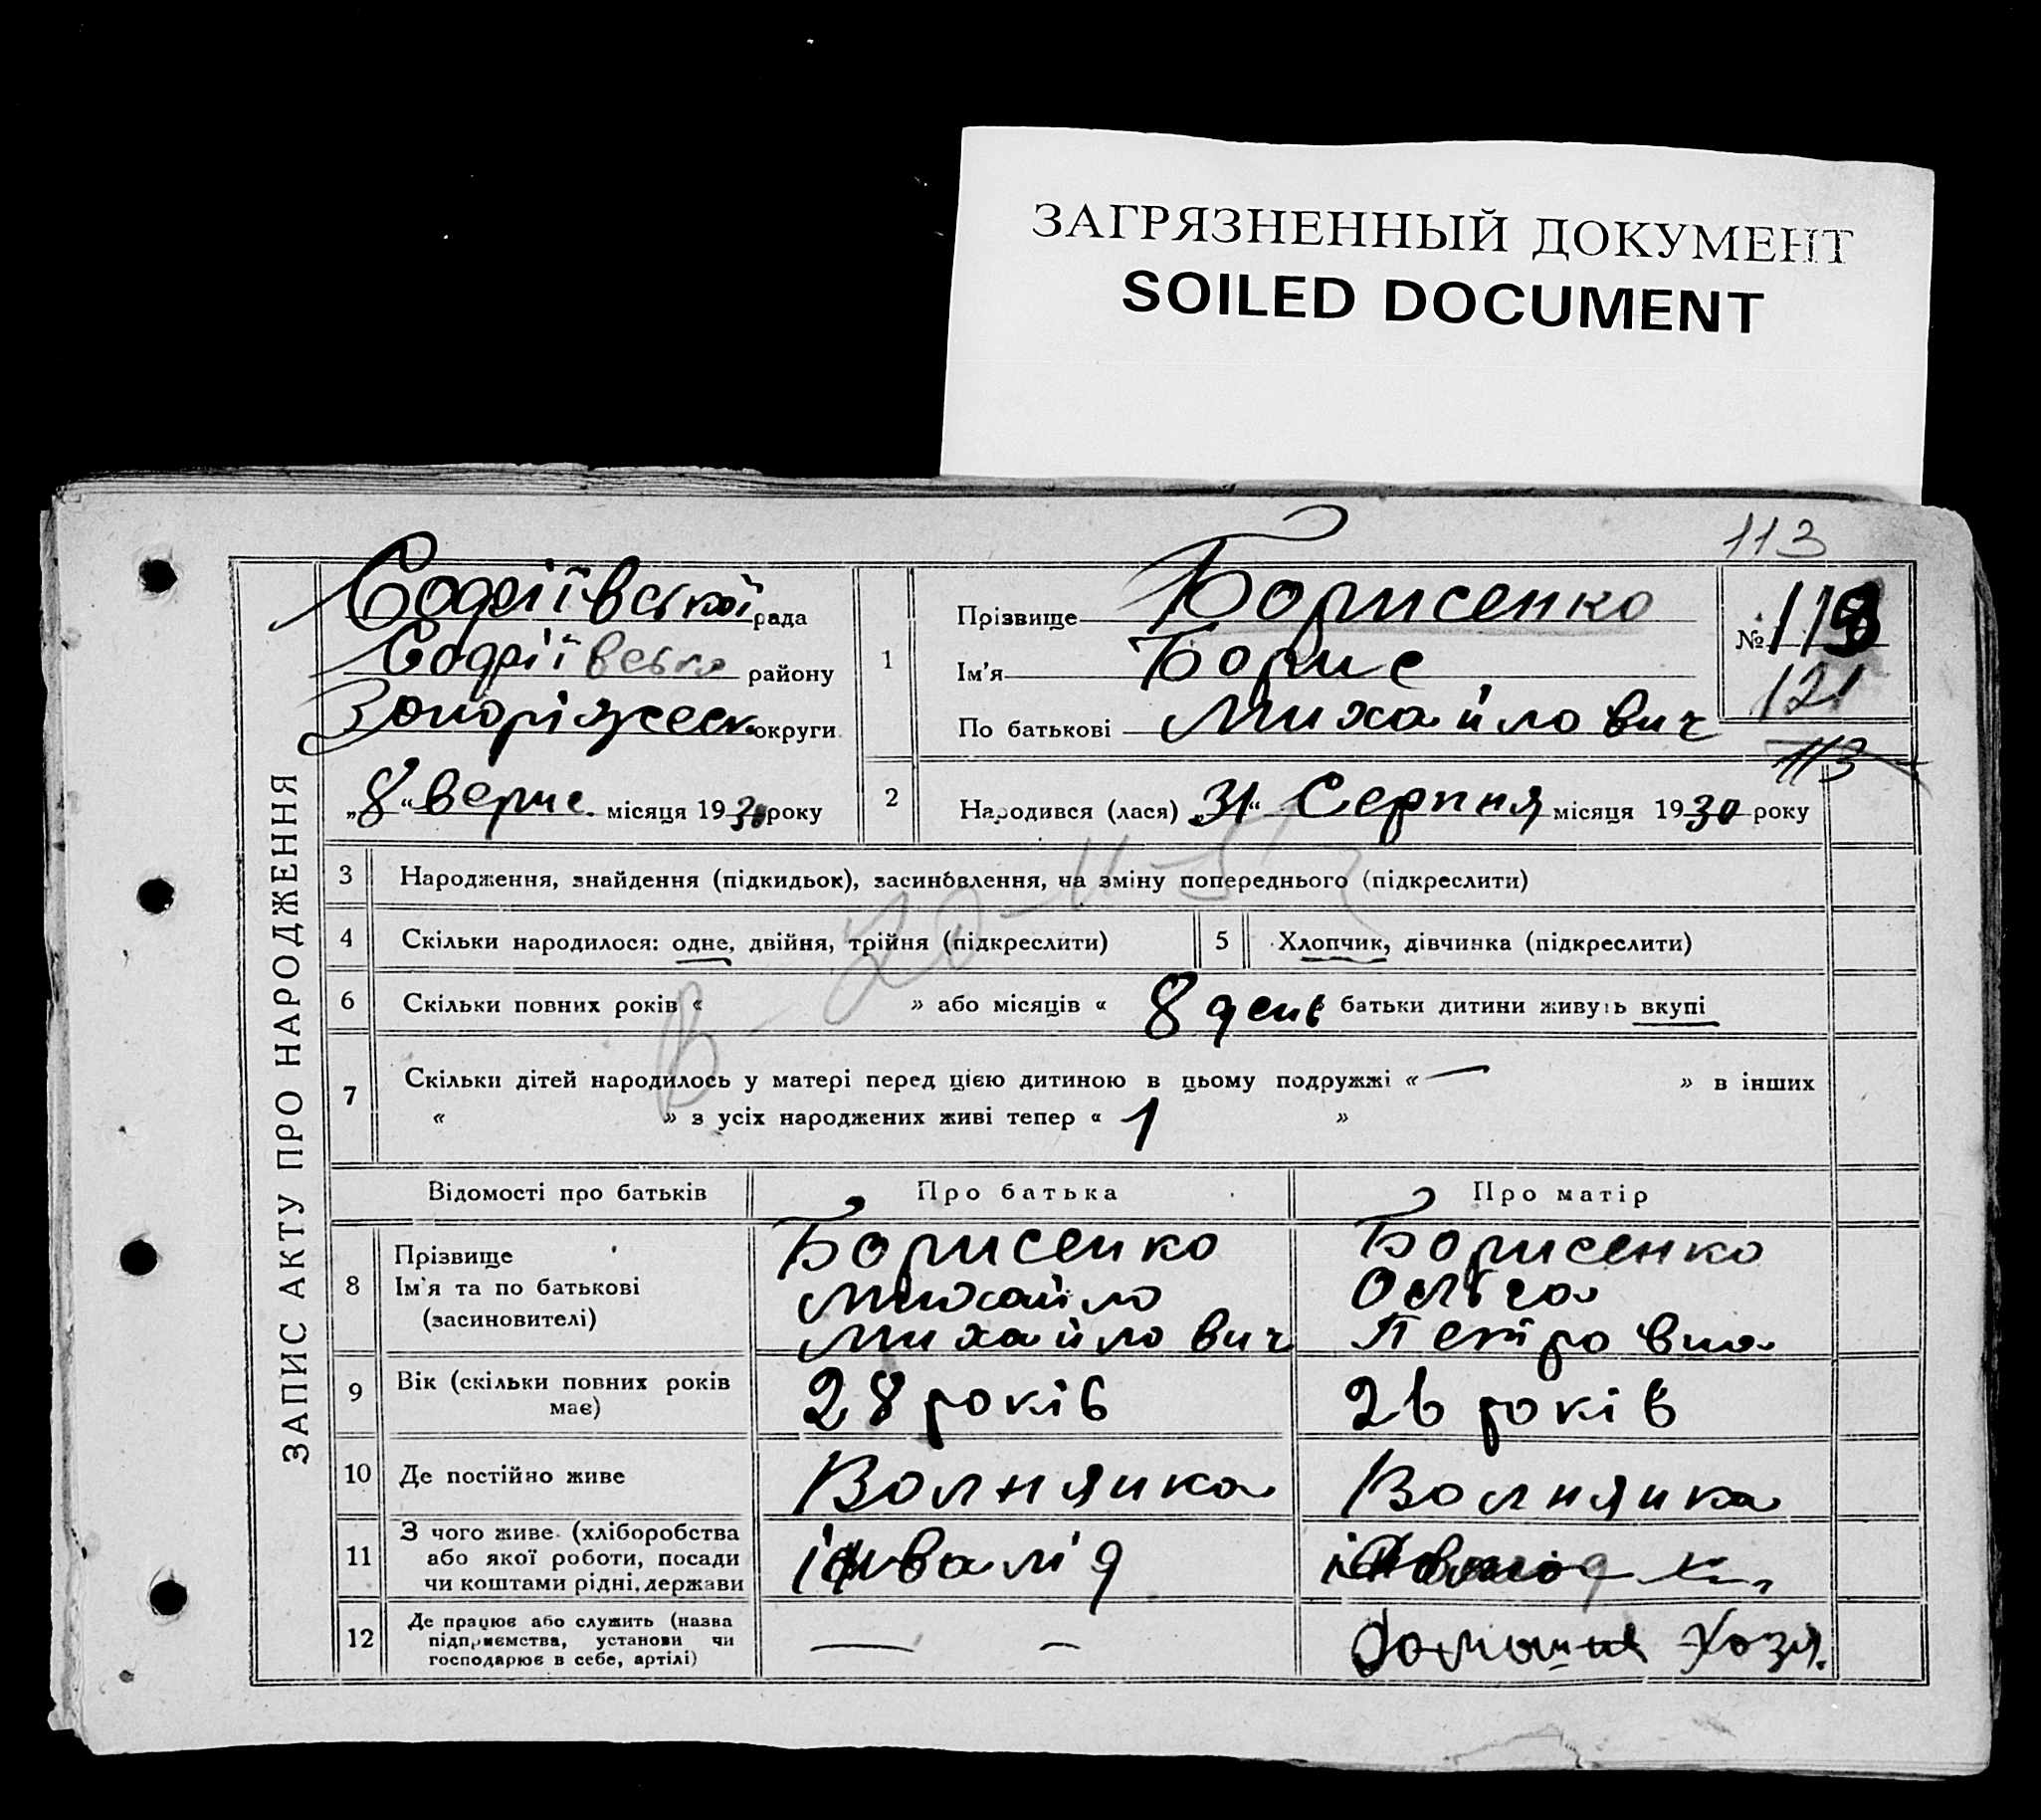 ЗАГРЯЗНЕННЫЙ ДОКУМЕНТ
SOILED DOCUMENT
113
ЗАПИС АКТУ ПРО НАРОДЖЕННЯ
Софіївської рада
Софіївсько району
Запоріжськ округи
„8“ верис. місяця 1930 року
1
Прізвище Борисенко
Ім'я Борис
По батькові Михайлович
№ 119
121
113
2 Народився (лася) „31“ Серпня місяця 1930 року
3 Народження, знайдення (підкидьок), засиновлення, на зміну попереднього (підкреслити)
4 Скільки народилося: одне, двійня, трійня (підкреслити) 5 Хлопчик, дівчинка (підкреслити)
6 Скільки повних років « » або місяців « 8 день батьки дитини живуть вкупі
7 Скільки дітей народилось у матері перед цією дитиною в цьому подружжі « — » в інших
« » з усіх народжених живі тепер « 1 »
Відомості про батьків Про батька Про матір
8 Прізвище
Ім'я та по батькові
(засиновителі)
Борисенко
Михайло
Михайлович
Борисенко
Ольга
Петровна
9 Вік (скільки повних років
має)
28 років 26 років
10 Де постійно живе Волнянка Волнянка
11 З чого живе (хліборобства
або якої роботи, посади
чи коштами рідні, держави
інвалід
12 Де працює або служить (назва
підприємства, установи чи
господарює в себе, артілі)
— — Домашня Хозя.